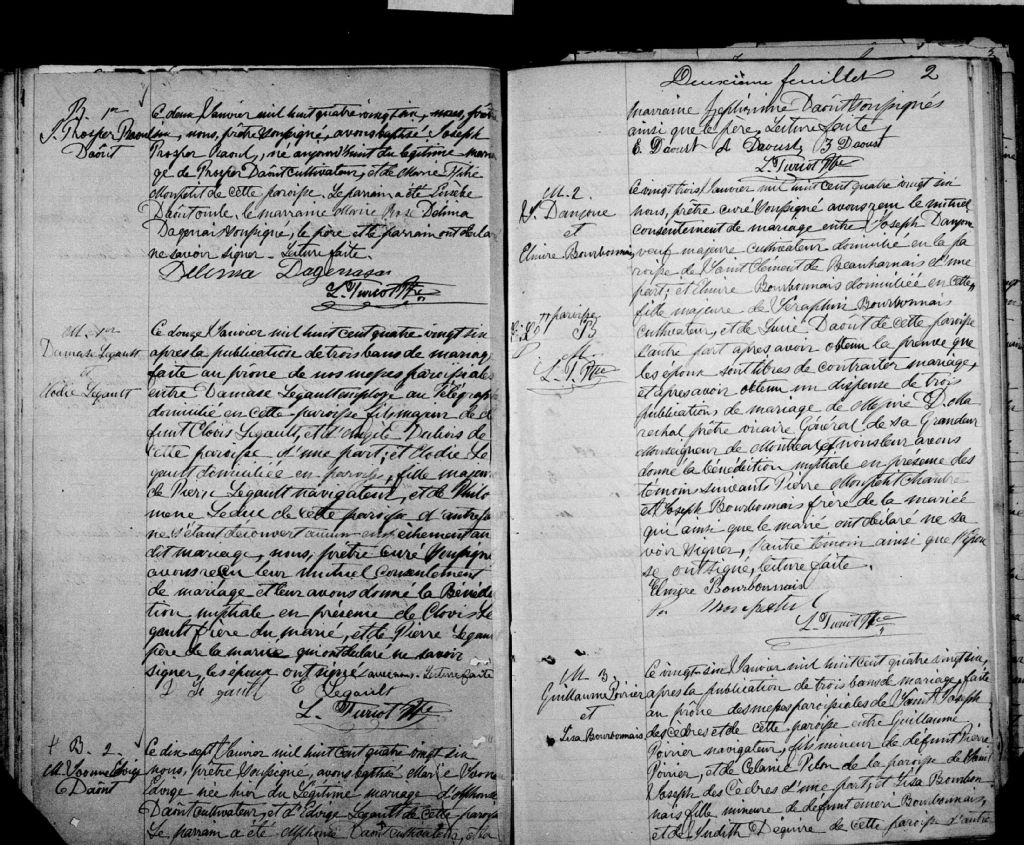 B. 1er
J. Prosper Raoul
Daôut
Ce deux Janvier mil huit cent quatre vingt
six, nous, prêtre soussigné, avons baptisé Joseph
Prosper Raoul, né aujourd'hui du légitime maria
ge de Prosper Daôut cultivateur, et de
Monpetit de cette paroisse. Le parrain a été
Daôut oncle, la marraine Marie Rose Delima
Dagenais soussigné, le père et le parrain ont déclaré
ne savoir signer. Lecture faite.
Delima Dagenais
L. Turiot Ptre
M. 1er
Damase Legault
et
Elodie Legault
Ce douze Janvier mil huit cent quatre vingt six
après la publication de trois bans de mariage
faite au prone de nos messes paroissiales
entre Damase Legault employé au Télégraphe
domicilié en cette paroisse fils majeur de dé
funt Clovis Legault, et d'Angèle Dubois de
cette paroisse d'une part; et Elodie Le
gault domiciliée en paroisse, fille majeure
de Pierre Legault navigateur, et de Philo
mene Leduc de cette paroisse d'autre part
ne s'étant découvert aucun empêchement au
dit mariage, nous, prêtre curé soussigné
avons reçu leur mutuel consentement
de mariage et leur avons donné la Bénédic
tion nuptiale en présence de Clovis Le
gault frère du marié, et de Pierre Legault
père de la mariée qui ont déclaré ne savoir
signer, les époux ont signé avec nous. Lecture faite
D Legault E Legault
L. Turiot Ptre
+ B. 2.
M. Yvonne Edwige
Daôut
Ce dix-sept Janvier mil huit cent quatre vingt six
nous, prêtre soussigné, avons baptisé Marie Yvonne
Edwige née hier du Légitime mariage d'Alphonse
Daôut cultivateur, et d'Edwige Legault de cette paroisse
Le parrain a été Alphonse Daôut cultivateur, et la
Deuxième feuillet 2
marraine Zéphirine Daôut soussignés
ainsi que le père, Lecture faite
E Daoust A Daoust, B Daoust
L. Turiot Ptre
M. 2.
J. Danjoue
et
Elmire Bourbonnais
paroisse
L. T. Ptre
Ce vingt trois Janvier mil huit cent quatre vingt six
nous, prêtre curé soussigné avons reçu le mutuel
consentement de mariage entre Joseph Danjou
veuf majeure cultivateur domicilié en la pa
roisse de Saint Clément de Beauharnais d'une
part; et Elmire Bourbonnais domiciliée en cette,
fille majeure de Séraphin Bourbonnais
cultivateur, et de Julie Daout de cette paroisse
l'autre part après avoir obtenu la preuve que
les époux sont libres de contracter mariage,
et après avoir obtenu un dispense de trois
publications de mariage de Messire D. Ma
rechal prêtre vicaire Général de sa Grandeur
Monseigneur de Montréal nous leur avons
donné la bénédiction nuptiale en présence des
témoins suivants Pierre Monpetit
et Joseph Bourbonnais frère de la mariée
qui ainsi que le marié ont déclaré ne sa
voir signer, l'autre témoin ainsi que l'épou
se ont signé, lecture faite.
Elmire Bourbonnais
P. Monpetit
L. Turiot Ptre
M. 3.
Guillaume Poirier
et
Lisa Bourbonnais
Ce vingt six Janvier mil huit cent quatre vingt six,
après la publication de trois bans de mariage, faite
au prone des messes paroissiales de Saint Joseph
des Cèdres et de cette paroisse entre Guillaume
Poirier navigateur, fils mineur de défunt Pierre
Poirier, et de Celanie Pilon de la paroisse de Saint
Joseph des Cèdres d'une part; et Lisa Bourbon
nais fille mineure de défunt Bourbonnais,
et de Judith Déquire de cette paroisse d'autre